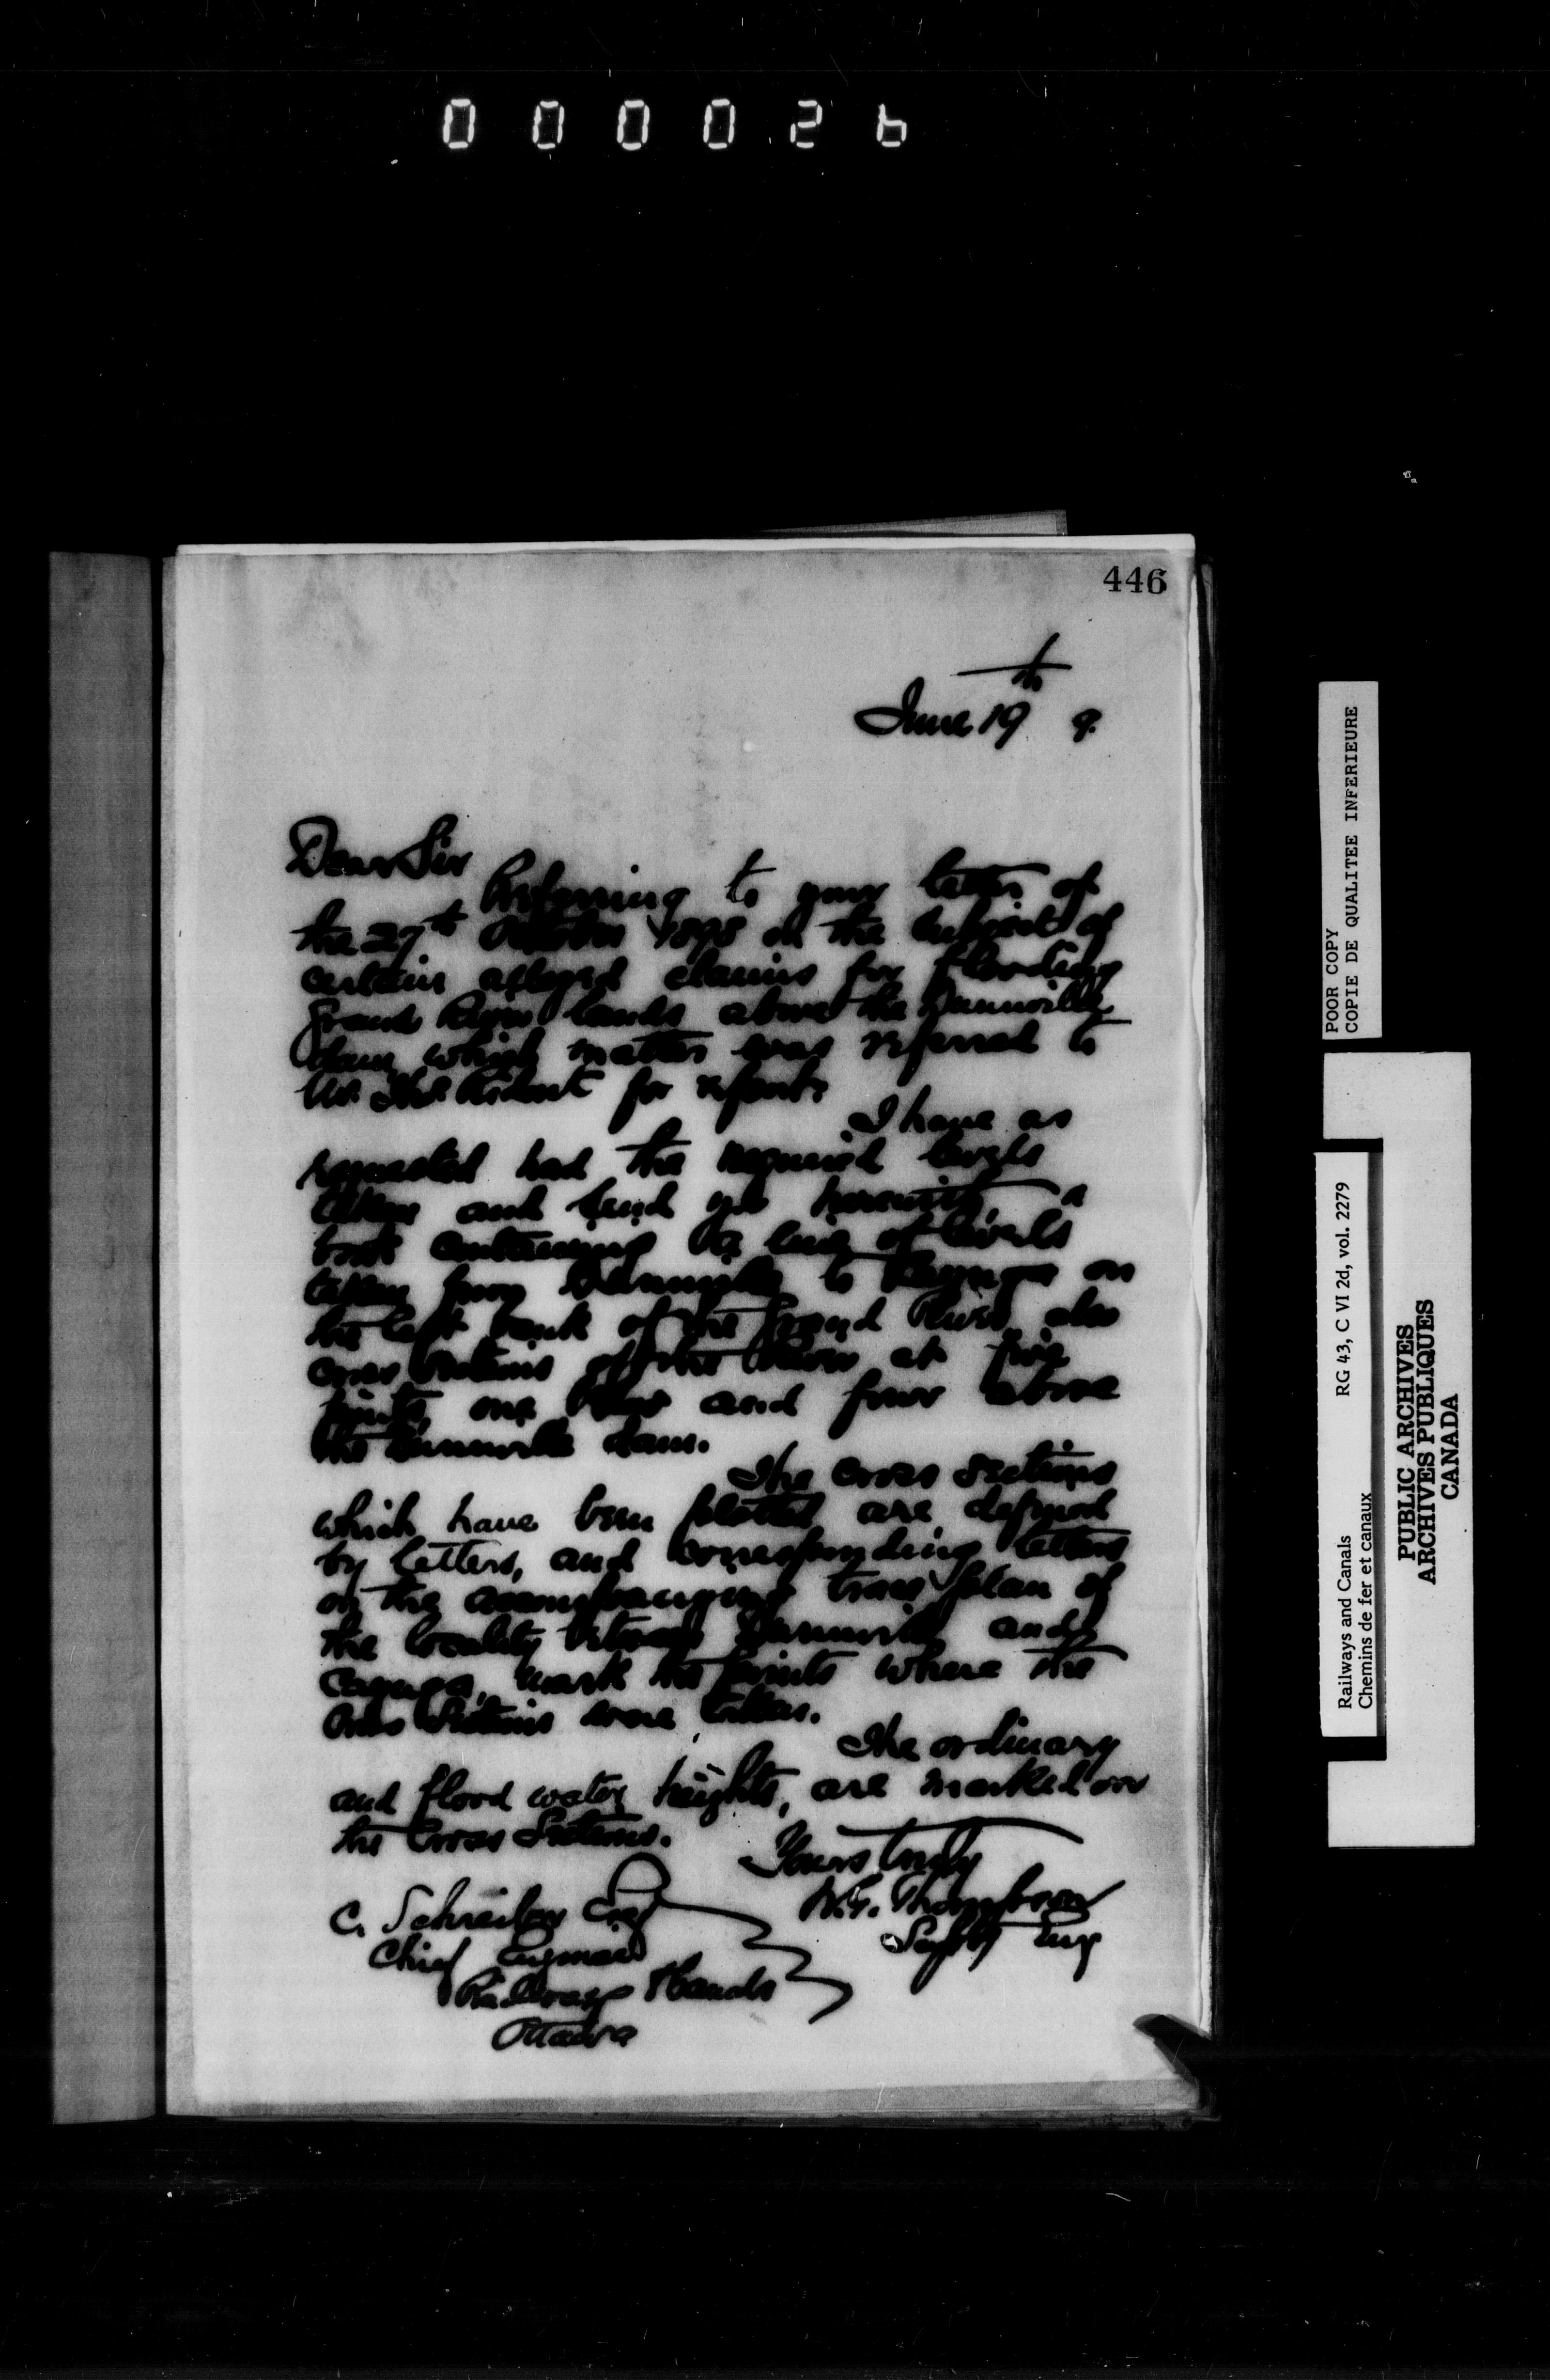 000026
446
June 19th 9.
Dear Sir
Referring to your letter of
the 27th October 1898 on the subject of
certain alleged claims for flooding
Grand River lands above the Dunnville
dam which matter was referred to
for report.
I have as
requested had the required levels
taken and send you herewith, a
book containing a line of levels
taken from Dunnville to Cayuga on
the left bank of the Grand River, also
cross sections of the River at five
points, one below and four above
the Dunnville dam.
The cross sections
which have been plotted are defined
by letters, and corresponding letters
on the accompanying trace plan of
the locality between Dunnville and
Cayuga, mark the points where the
cross sections were taken.
The ordinary
and flood water heights, are marked on
the Cross Sections.
Yours truly
W.G. Thompson
Supt Eng
C. Schreiber Esq
Chief Engineer
Railways & Canals
Ottawa
POOR COPY
COPIE DE QUALITEE INFERIEURE
Railways and Canals
Chemins de fer et canaux
RG 43, C VI 2d, vol. 2279
PUBLIC ARCHIVES
ARCHIVES PUBLIQUES
CANADA